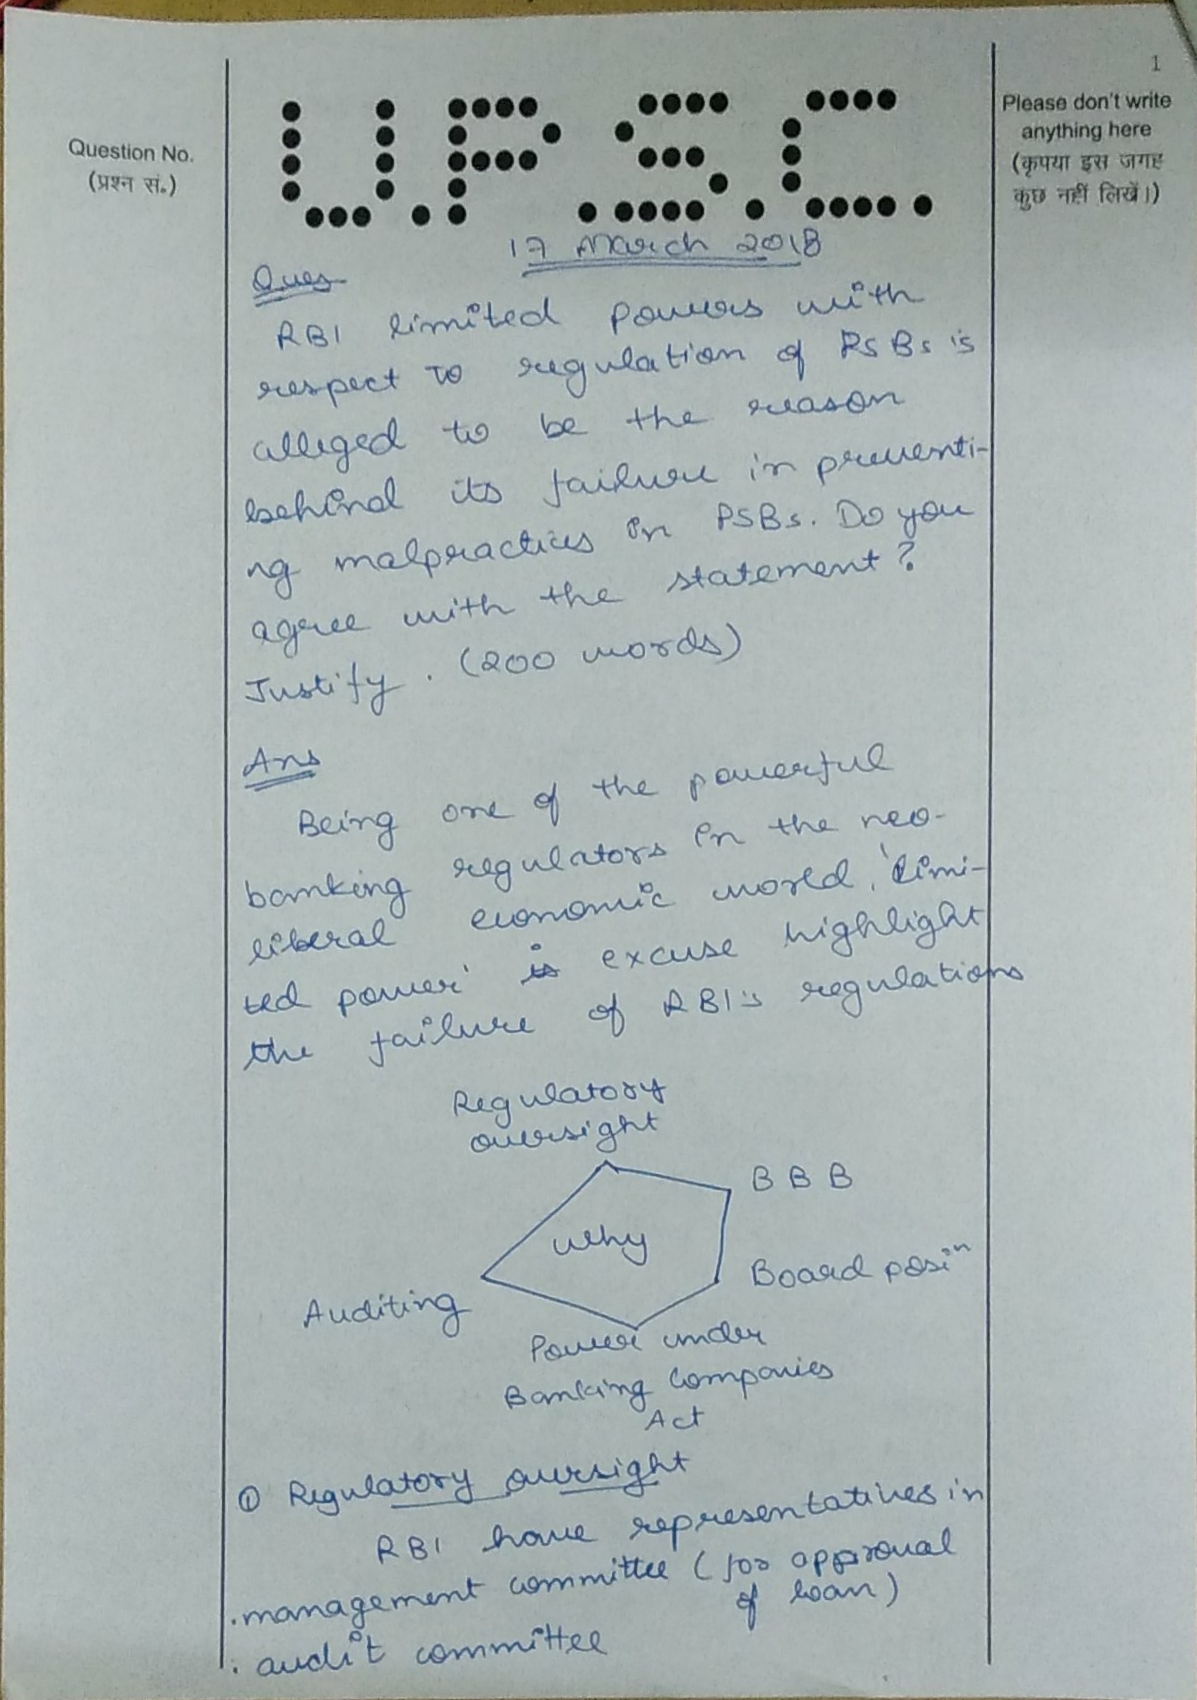 1
Question No.
(प्रश्न सं.)
U.P.S.C.
Please don't write
anything here
(कृपया इस जगह
कुछ नहीं लिखें।)
17 March 2018
Ques
RBI limited powers with
respect to regulation of PSBs is
alleged to be the reason
behind its failure in preventi-
ng malpractices in PSBs. Do you
agree with the statement?
Justify. (200 words)
Ans
Being one of the powerful
banking regulators in the neo-
liberal economic world, 'limi-
ted power' is excuse highlight
the failure of RBI's regulations
Regulatory
oversight
BBB
why
Board posiⁿ
Auditing
Power under
Banking Companies
Act
① Regulatory oversight
RBI have representatives in
. management committee (for approval
of loan)
. audit committee